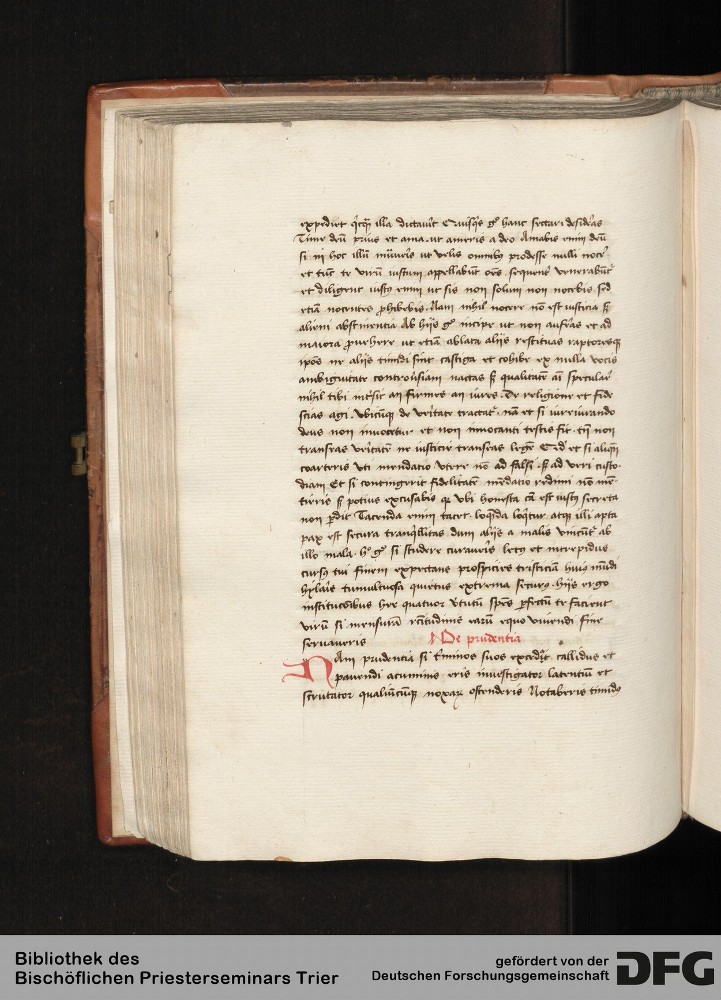 expediet quicquid illa dictaverit Quisquis gº hanc sectari desideras
Time deū prius et ama ut ameris a deo Amabis enim deū
si in hoc illū imitaveris ut velis omnibus prodesse nulli nocere
et tūc te virū iustum appellabūt oēs sequentur venerabūtur
et diligent iustus enim ut sis non solum non nocebis sed
etiā nocentes prohibebis Nam nihil nocere nō est iusticia sed
alieni abstinentia Ab hiis gº incipe ut non auferas et ad
maiora provehere ut etiā ablata aliis restituas raptoresque
ipsos ne aliis timidi sint castiga et cohibe ex nulla vocis
ambiguitate controversiam nactas sed qualitatē animi speculare
nihil tibi intersit an firmes an iures De religione et fide
scias agi ubicunque de veritate tractatur nā et si iureiurando
deus non invocetur et non invocanti testis sit tamen non
transeas veritatē ne iusticie transeas legē Et si aliquando
coarteris uti mendatio utere nō ad falsi sed ad veri custo
diam Et si contingerit fidelitatē mēdatio redimi nō men
tieris sed potius excusabis quia ubi honesta causa est iustus secreta
non prodit Tacenda enim tacet loquenda loquitur atque illi apta
pax est secura tranquillitas dum aliis a malis vincuntur ab
illo mala hec gº si studere curaveris letus et intrepidus
cursus tui finem expectans prospicies tristiciā huius mūdi
hylaris tumultuosa quietus extrema securus hiis ergo
institucōibus hec quatuor virtutū species perfectū te facient
virū si mensurā rectitudinis earū equo vivendi fine
servaveris De prudentia
Nam prudentia si terminos suos excedit callidus et
pavendi acuminis eris investigator latentiū et
scrutator qualiūcunque noxarum ostenderis Notaberis timidus
Bibliothek des
Bischöflichen Priesterseminars Trier
gefördert von der
Deutschen Forschungsgemeinschaft DFG